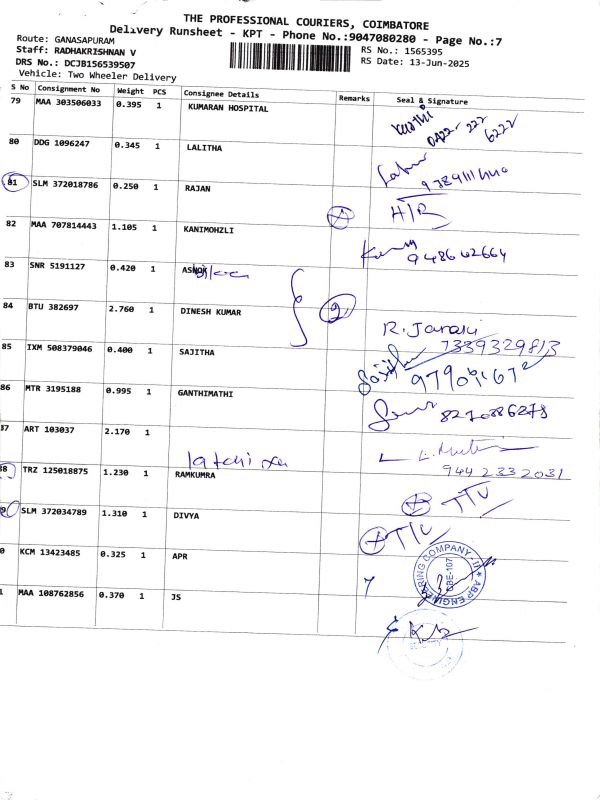 THE PROFESSIONAL COURIERS, COIMBATORE
Delivery Runsheet - KPT - Phone No.:9047080280 - Page No.:7
Route: GANASAPURAM
Staff: RADHAKRISHNAN V
RS No.: 1565395
DRS No.: DCJB156539507
RS Date: 13-Jun-2025
Vehicle: Two Wheeler Delivery
S No Consignment No Weight PCS Consignee Details Remarks Seal & Signature
79 MAA 303506033 0.395 1 KUMARAN HOSPITAL
0422- 222 6222
80 DDG 1096247 0.345 1 LALITHA
81 SLM 372018786 0.250 1 RAJAN
82 MAA 707814443 1.105 1 KANIMOHZLI
9486402664
83 SNR 5191127 0.420 1 ASHOK
84 BTU 382697 2.760 1 DINESH KUMAR 2
R. Janaki
7339329813
85 IXM 508379046 0.400 1 SAJITHA
86 MTR 3195188 0.995 1 GANTHIMATHI
8270886278
37 ART 103037 2.170 1
944 2332031
38 TRZ 125018875 1.230 1 RAMKUMRA
9 SLM 372034789 1.310 1 DIVYA
0 KCM 13423485 0.325 1 APR
ABP ENGINEERING COMPANY - III
CBE-107
1 MAA 108762856 0.370 1 JS
SECURITY